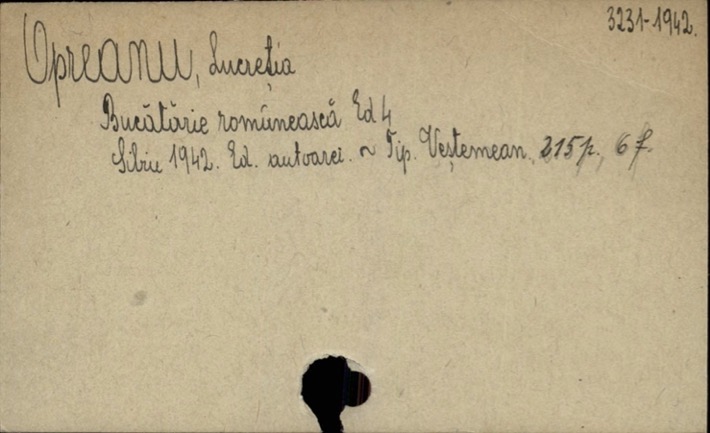 3231-1942.
Opreanu, Lucreția
Bucătărie românească Ed 4
Sibiu 1942. Ed. autoarei. ~ Tip. Veștemean. 215 p., 6 f.